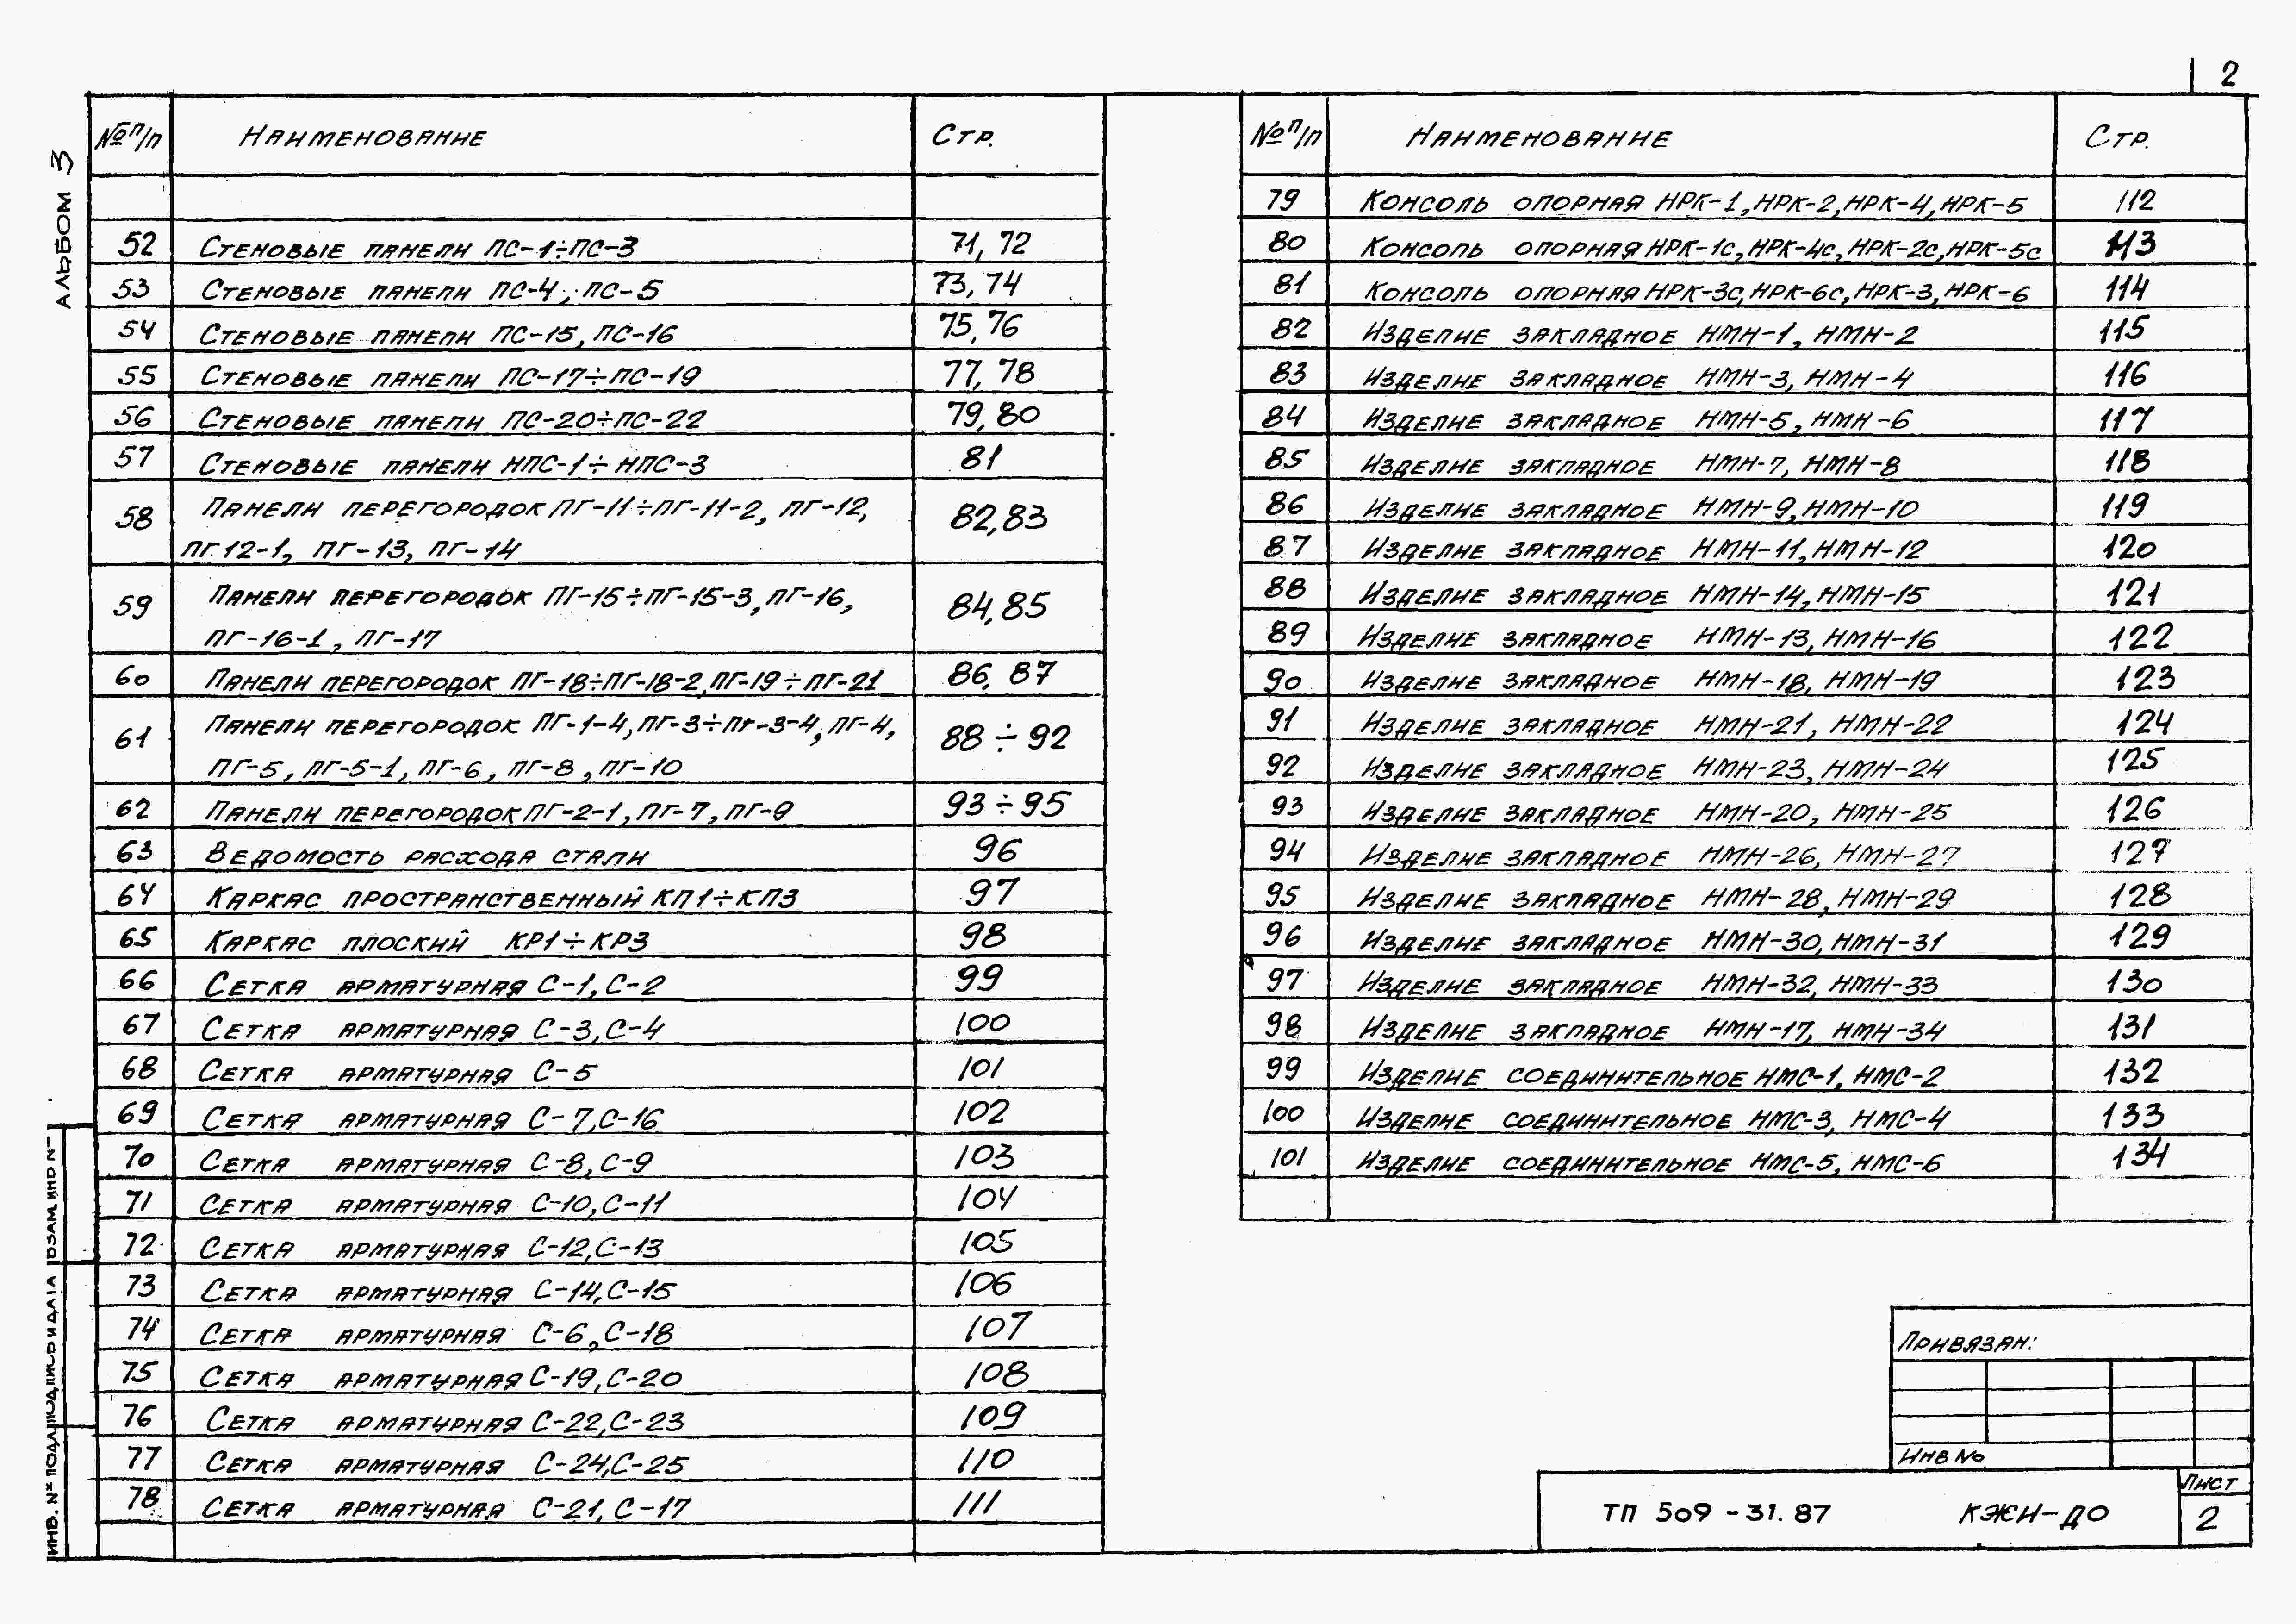 2
АЛЬБОМ 3
№ п/п НАИМЕНОВАНИЕ СТР.
52 СТЕНОВЫЕ ПАНЕЛИ ПС-1÷ПС-3 71, 72
53 СТЕНОВЫЕ ПАНЕЛИ ПС-4, ПС-5 73, 74
54 СТЕНОВЫЕ ПАНЕЛИ ПС-15, ПС-16 75, 76
55 СТЕНОВЫЕ ПАНЕЛИ ПС-17÷ПС-19 77, 78
56 СТЕНОВЫЕ ПАНЕЛИ ПС-20÷ПС-22 79, 80
57 СТЕНОВЫЕ ПАНЕЛИ НПС-1÷НПС-3 81
58 ПАНЕЛИ ПЕРЕГОРОДОК ПГ-11÷ПГ-11-2, ПГ-12, 82,83
ПГ 12-1, ПГ-13, ПГ-14
59 ПАНЕЛИ ПЕРЕГОРОДОК ПГ-15÷ПГ-15-3, ПГ-16, 84,85
ПГ-16-1, ПГ-17
60 ПАНЕЛИ ПЕРЕГОРОДОК ПГ-18÷ПГ-18-2, ПГ-19÷ПГ-21 86, 87
61 ПАНЕЛИ ПЕРЕГОРОДОК ПГ-1-4, ПГ-3÷ПГ-3-4, ПГ-4, 88÷92
ПГ-5, ПГ-5-1, ПГ-6, ПГ-8, ПГ-10
62 ПАНЕЛИ ПЕРЕГОРОДОК ПГ-2-1, ПГ-7, ПГ-9 93÷95
63 ВЕДОМОСТЬ РАСХОДА СТАЛИ 96
64 КАРКАС ПРОСТРАНСТВЕННЫЙ КП1÷КП3 97
65 КАРКАС ПЛОСКИЙ КР1÷КР3 98
66 СЕТКА АРМАТУРНАЯ С-1, С-2 99
67 СЕТКА АРМАТУРНАЯ С-3, С-4 100
68 СЕТКА АРМАТУРНАЯ С-5 101
69 СЕТКА АРМАТУРНАЯ С-7, С-16 102
70 СЕТКА АРМАТУРНАЯ С-8, С-9 103
71 СЕТКА АРМАТУРНАЯ С-10, С-11 104
72 СЕТКА АРМАТУРНАЯ С-12, С-13 105
73 СЕТКА АРМАТУРНАЯ С-14, С-15 106
74 СЕТКА АРМАТУРНАЯ С-6, С-18 107
75 СЕТКА АРМАТУРНАЯ С-19, С-20 108
76 СЕТКА АРМАТУРНАЯ С-22, С-23 109
77 СЕТКА АРМАТУРНАЯ С-24, С-25 110
78 СЕТКА АРМАТУРНАЯ С-21, С-17 111
№ п/п НАИМЕНОВАНИЕ СТР.
79 КОНСОЛЬ ОПОРНАЯ НРК-1, НРК-2, НРК-4, НРК-5 112
80 КОНСОЛЬ ОПОРНАЯ НРК-1С, НРК-4С, НРК-2С, НРК-5С 113
81 КОНСОЛЬ ОПОРНАЯ НРК-3С, НРК-6С, НРК-3, НРК-6 114
82 ИЗДЕЛИЕ ЗАКЛАДНОЕ НМН-1, НМН-2 115
83 ИЗДЕЛИЕ ЗАКЛАДНОЕ НМН-3, НМН-4 116
84 ИЗДЕЛИЕ ЗАКЛАДНОЕ НМН-5, НМН-6 117
85 ИЗДЕЛИЕ ЗАКЛАДНОЕ НМН-7, НМН-8 118
86 ИЗДЕЛИЕ ЗАКЛАДНОЕ НМН-9, НМН-10 119
87 ИЗДЕЛИЕ ЗАКЛАДНОЕ НМН-11, НМН-12 120
88 ИЗДЕЛИЕ ЗАКЛАДНОЕ НМН-14, НМН-15 121
89 ИЗДЕЛИЕ ЗАКЛАДНОЕ НМН-13, НМН-16 122
90 ИЗДЕЛИЕ ЗАКЛАДНОЕ НМН-18, НМН-19 123
91 ИЗДЕЛИЕ ЗАКЛАДНОЕ НМН-21, НМН-22 124
92 ИЗДЕЛИЕ ЗАКЛАДНОЕ НМН-23, НМН-24 125
93 ИЗДЕЛИЕ ЗАКЛАДНОЕ НМН-20, НМН-25 126
94 ИЗДЕЛИЕ ЗАКЛАДНОЕ НМН-26, НМН-27 127
95 ИЗДЕЛИЕ ЗАКЛАДНОЕ НМН-28, НМН-29 128
96 ИЗДЕЛИЕ ЗАКЛАДНОЕ НМН-30, НМН-31 129
97 ИЗДЕЛИЕ ЗАКЛАДНОЕ НМН-32, НМН-33 130
98 ИЗДЕЛИЕ ЗАКЛАДНОЕ НМН-17, НМН-34 131
99 ИЗДЕЛИЕ СОЕДИНИТЕЛЬНОЕ НМС-1, НМС-2 132
100 ИЗДЕЛИЕ СОЕДИНИТЕЛЬНОЕ НМС-3, НМС-4 133
101 ИЗДЕЛИЕ СОЕДИНИТЕЛЬНОЕ НМС-5, НМС-6 134
ПРИВЯЗАН:
ИНВ №
ТП 509-31.87 КЖИ-ДО
ЛИСТ
2
ИНВ. № ПОДЛ
ПОДПИСЬ И ДАТА
ВЗАМ. ИНВ №